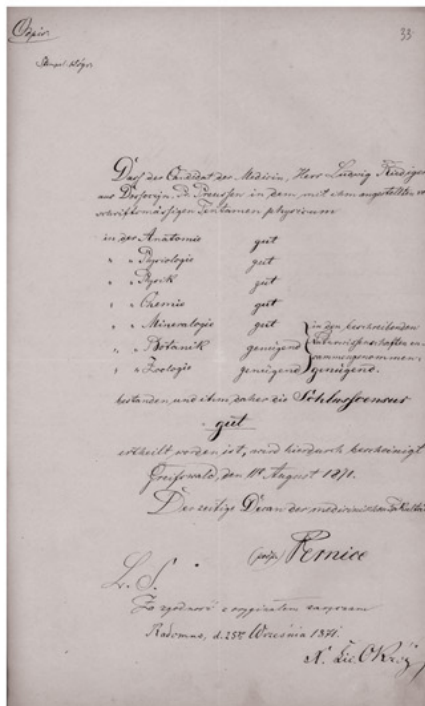 Copia
33
Stempel 15 Sgr.
Dass der Candidat der Medicin, Herr Ludwig Riediger
aus in Preussen in dem, mit ihm angestellten
schriftsmässigen Tentamen physicum
in der Anatomie gut
" " Physiologie gut
" " Physik gut
" " Chemie gut
" " Mineralogie gut in den beschreibenden
" " Botanik genügend Naturwissenschaften zu-
" " Zoologie genügend sammengenommen,
genügend.
bestanden, und ihm daher die Schlusscensur
gut
ertheilt worden ist, wird hierdurch bescheinigt
Greifswald, den 11t August 1871.
Der zeitige Decan der medicinischen Fakultät
(podp.) Pernice
L. S.
Za zgodność z oryginałem zaręczam
d. 25 Września 1871.